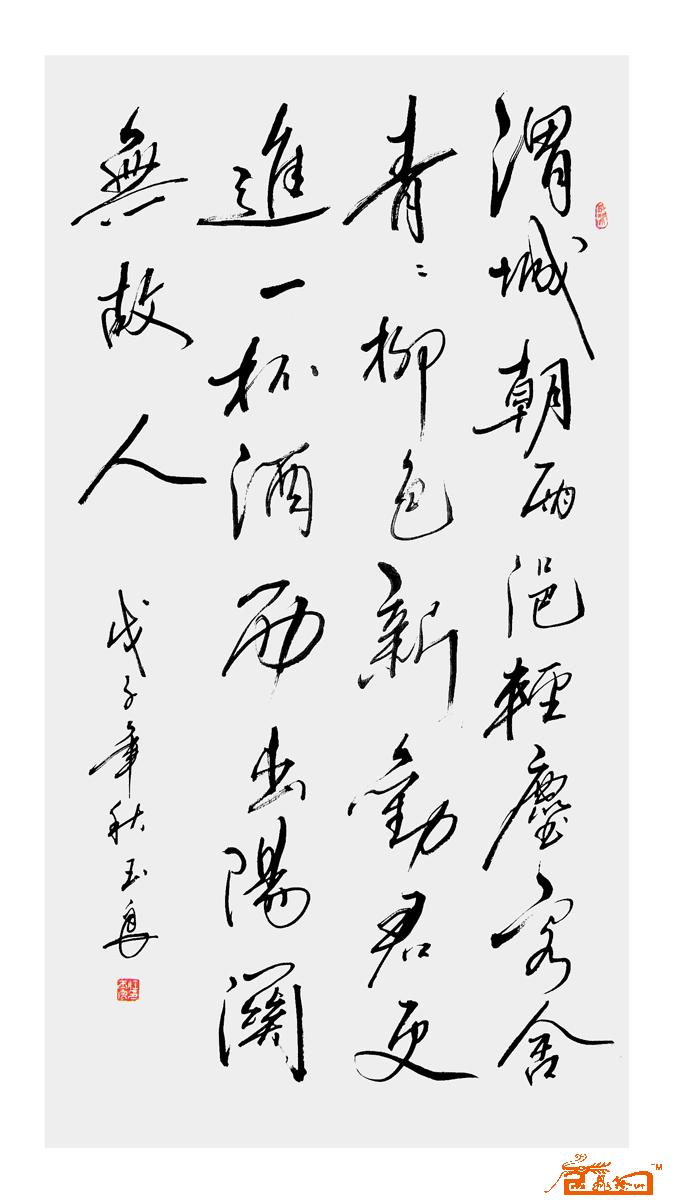 渭城朝雨浥輕塵客舍
青〻柳色新勸君更
進一杯酒西出陽關
無故人
戊子年秋玉